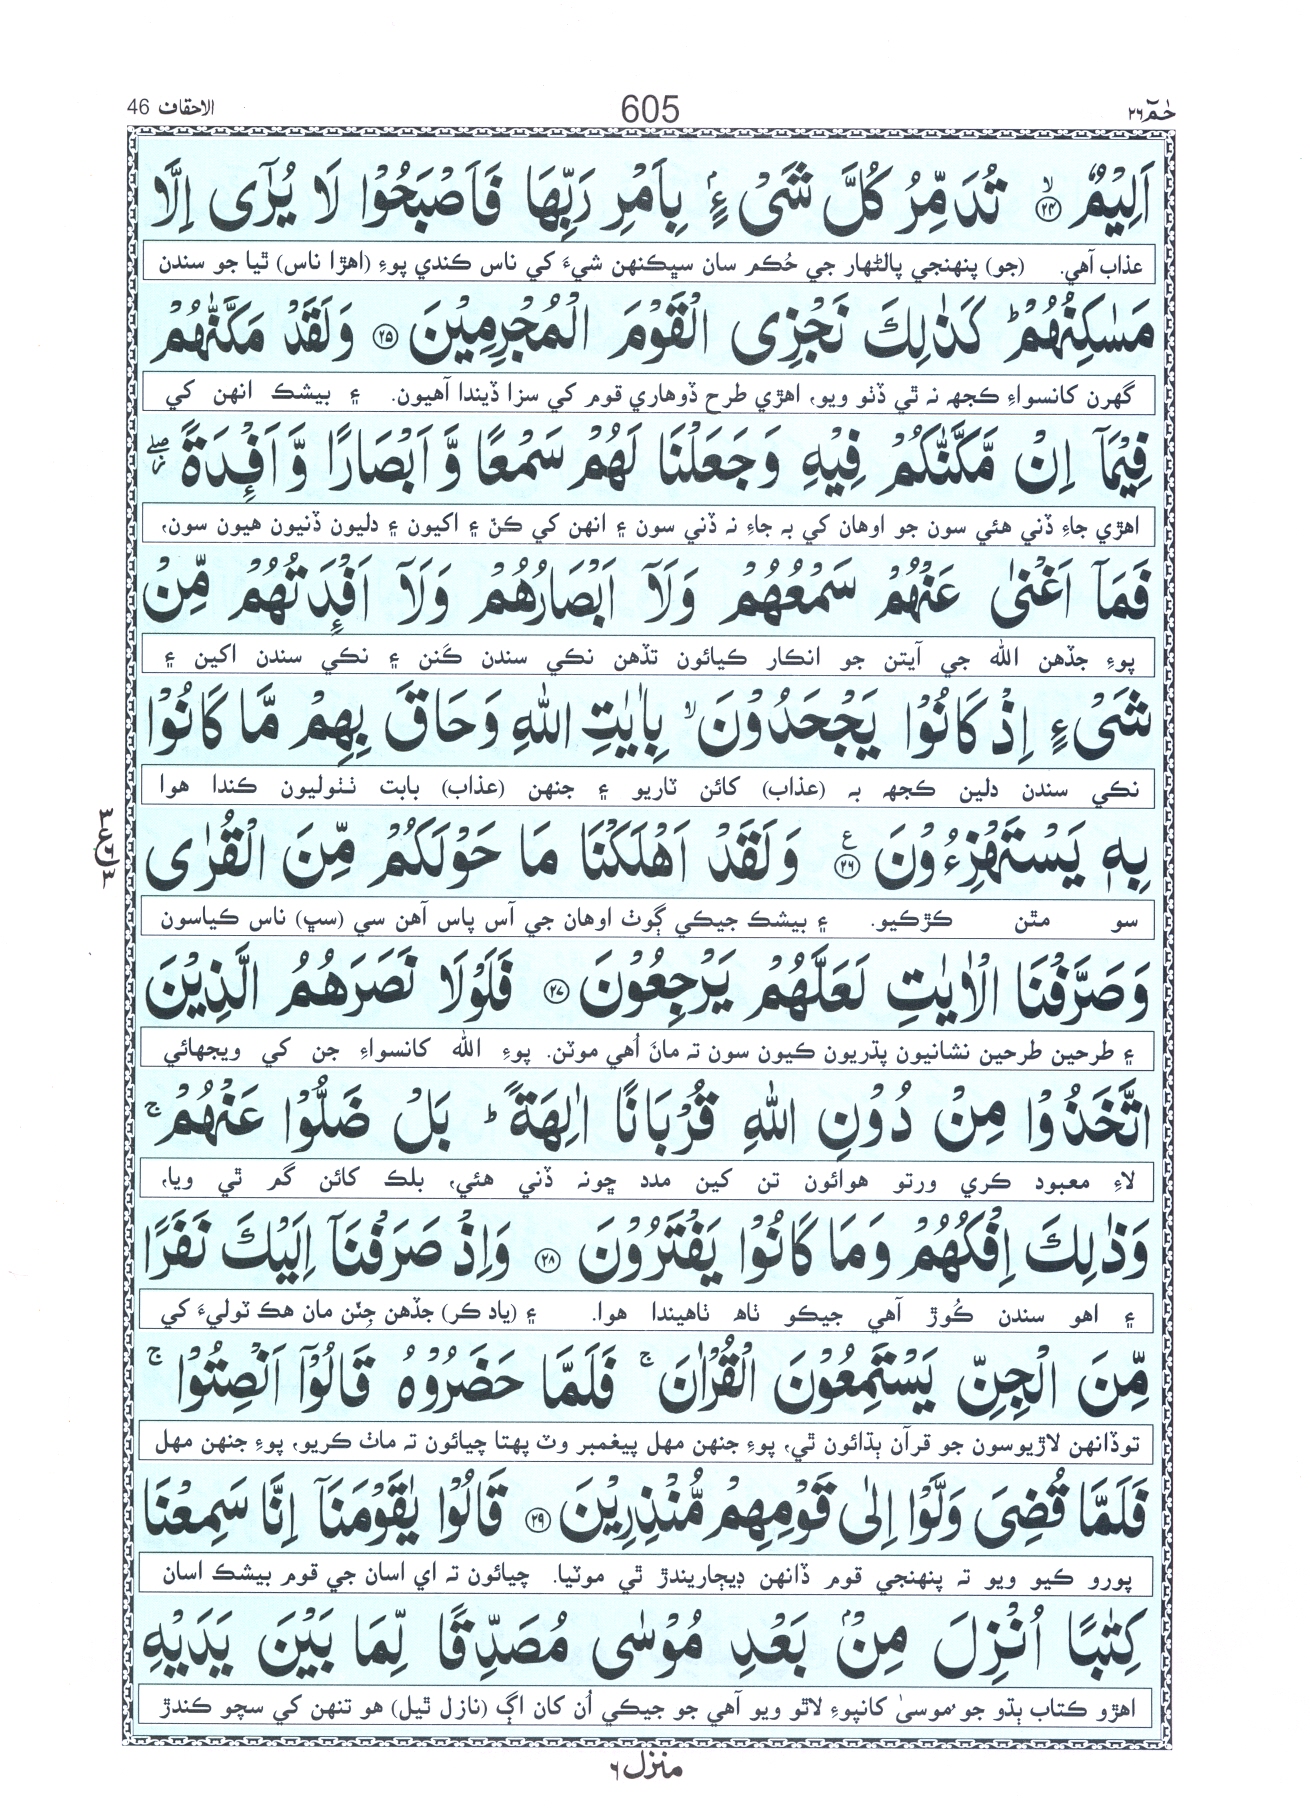 حٰمٓ ٢٦
605
الاحقاف 46
اَلِيْمٌ ۙ ﴿٢٤﴾ تُدَمِّرُ كُلَّ شَىْءٍۭ بِاَمْرِ رَبِّهَا فَاَصْبَحُوْا لَا يُرٰٓى اِلَّا
عذاب آهي. (جو) پنهنجي پالڻهار جي حُڪم سان سڀڪنهن شيءَ کي ناس ڪندي پوءِ (اهڙا ناس) ٿيا جو سندن
مَسٰكِنُهُمْ ؕ كَذٰلِكَ نَجْزِى الْقَوْمَ الْمُجْرِمِيْنَ ﴿٢٥﴾ وَلَقَدْ مَكَّنّٰهُمْ
گهرن کانسواءِ ڪجهہ نہ ٿي ڏٺو ويو، اهڙي طرح ڏوهاري قوم کي سزا ڏيندا آهيون. ۽ بيشڪ انهن کي
فِيْمَآ اِنْ مَّكَّنّٰكُمْ فِيْهِ وَجَعَلْنَا لَهُمْ سَمْعًا وَّ اَبْصَارًا وَّ اَفْـِٕدَةً ۖ ز
اهڙي جاءِ ڏني هئي سون جو اوهان کي بہ جاءِ نہ ڏني سون ۽ انهن کي ڪنّ ۽ اکيون ۽ دليون ڏنيون هيون سون،
فَمَآ اَغْنٰى عَنْهُمْ سَمْعُهُمْ وَلَآ اَبْصَارُهُمْ وَلَآ اَفْـِٕدَتُهُمْ مِّنْ
پوءِ جڏهن الله جي آيتن جو انڪار ڪيائون تڏهن نڪي سندن ڪَنن ۽ نڪي سندن اکين ۽
شَىْءٍ اِذْ كَانُوْا يَجْحَدُوْنَ ۙ بِاٰيٰتِ اللّٰهِ وَحَاقَ بِهِمْ مَّا كَانُوْا
نڪي سندن دلين ڪجهہ بہ (عذاب) کائن ٽاريو ۽ جنهن (عذاب) بابت ٺٺوليون ڪندا هوا
بِهٖ يَسْتَهْزِءُوْنَ ﴿٢٦﴾ ع وَلَقَدْ اَهْلَكْنَا مَا حَوْلَكُمْ مِّنَ الْقُرٰى
٣ ع ٦ ٣
سو مٿن ڪڙڪيو. ۽ بيشڪ جيڪي ڳوٺ اوهان جي آس پاس آهن سي (سڀ) ناس ڪياسون
وَصَرَّفْنَا الْاٰيٰتِ لَعَلَّهُمْ يَرْجِعُوْنَ ﴿٢٧﴾ فَلَوْلَا نَصَرَهُمُ الَّذِيْنَ
۽ طرحين طرحين نشانيون پڌريون ڪيون سون تہ مانَ اُهي موٽن. پوءِ الله کانسواءِ جن کي ويجهائي
اتَّخَذُوْا مِنْ دُوْنِ اللّٰهِ قُرْبَانًا اٰلِهَةً ؕ بَلْ ضَلُّوْا عَنْهُمْ ۚ
لاءِ معبود ڪري ورتو هوائون تن کين مدد ڇونہ ڏني هئي، بلڪ کائن گم ٿي ويا،
وَذٰلِكَ اِفْكُهُمْ وَمَا كَانُوْا يَفْتَرُوْنَ ﴿٢٨﴾ وَاِذْ صَرَفْنَآ اِلَيْكَ نَفَرًا
۽ اهو سندن ڪُوڙ آهي جيڪو ٺاهہ ٺاهيندا هوا. ۽ (ياد ڪر) جڏهن جِنّن مان هڪ ٽوليءَ کي
مِّنَ الْجِنِّ يَسْتَمِعُوْنَ الْقُرْاٰنَ ۚ فَلَمَّا حَضَرُوْهُ قَالُوْٓا اَنْصِتُوْا ۚ
توڏانهن لاڙيوسون جو قرآن ٻڌائون ٿي، پوءِ جنهن مهل پيغمبر وٽ پهتا چيائون تہ ماٺ ڪريو، پوءِ جنهن مهل
فَلَمَّا قُضِىَ وَلَّوْا اِلٰى قَوْمِهِمْ مُّنْذِرِيْنَ ﴿٢٩﴾ قَالُوْا يٰقَوْمَنَآ اِنَّا سَمِعْنَا
پورو ڪيو ويو تہ پنهنجي قوم ڏانهن ڊيڄاريندڙ ٿي موٽيا. چيائون تہ اي اسان جي قوم بيشڪ اسان
كِتٰبًا اُنْزِلَ مِنْۢ بَعْدِ مُوْسٰى مُصَدِّقًا لِّمَا بَيْنَ يَدَيْهِ
اهڙو ڪتاب ٻڌو جو مُوسىٰ کانپوءِ لاٿو ويو آهي جو جيڪي اُن کان اڳ (نازل ٿيل) هو تنهن کي سچو ڪندڙ
منزل ٦